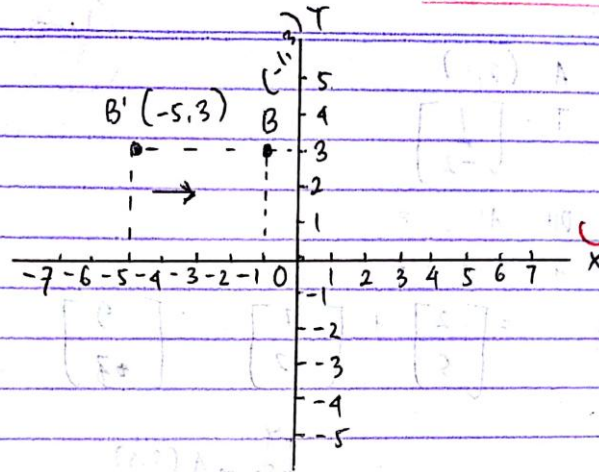 Y
(-1,3)
5
B' (-5,3)
B
4
3
2
1
-7 -6 -5 -4 -3 -2 -1 0 1 2 3 4 5 6 7
X
-1
-2
-3
-4
-5